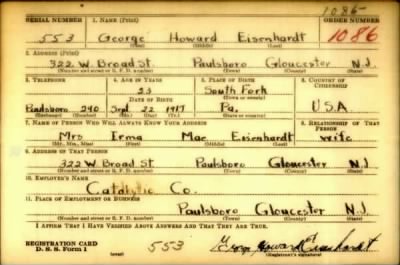 1086
SERIAL NUMBER 1. NAME (Print) ORDER NUMBER
553 George Howard Eisenhardt 1086
(First) (Middle) (Last)
2. ADDRESS (Print)
322 W. Broad St. Paulsboro Gloucester N.J.
(Number and street or R. F. D. number) (Town) (County) (State)
3. TELEPHONE 4. AGE IN YEARS 5. PLACE OF BIRTH 6. COUNTRY OF CITIZENSHIP
23 South Fork
DATE OF BIRTH (Town or county)
Paulsboro 240 Sept. 22 1917 Pa. U.S.A.
(Exchange) (Number) (Mo.) (Day) (Yr.) (State or country)
7. NAME OF PERSON WHO WILL ALWAYS KNOW YOUR ADDRESS 8. RELATIONSHIP OF THAT PERSON
Mrs Irma Mae Eisenhardt wife
(Mr., Mrs., Miss) (First) (Middle) (Last)
9. ADDRESS OF THAT PERSON
322 W. Broad St. Paulsboro Gloucester N.J.
(Number and street or R. F. D. number) (Town) (County) (State)
10. EMPLOYER'S NAME
Catalytic Co.
11. PLACE OF EMPLOYMENT OR BUSINESS
Paulsboro Gloucester N.J.
(Number and street or R. F. D. number) (Town) (County) (State)
I AFFIRM THAT I HAVE VERIFIED ABOVE ANSWERS AND THAT THEY ARE TRUE.
REGISTRATION CARD
D. S. S. Form 1 553 George Howard Eisenhardt
(Registrant's signature)